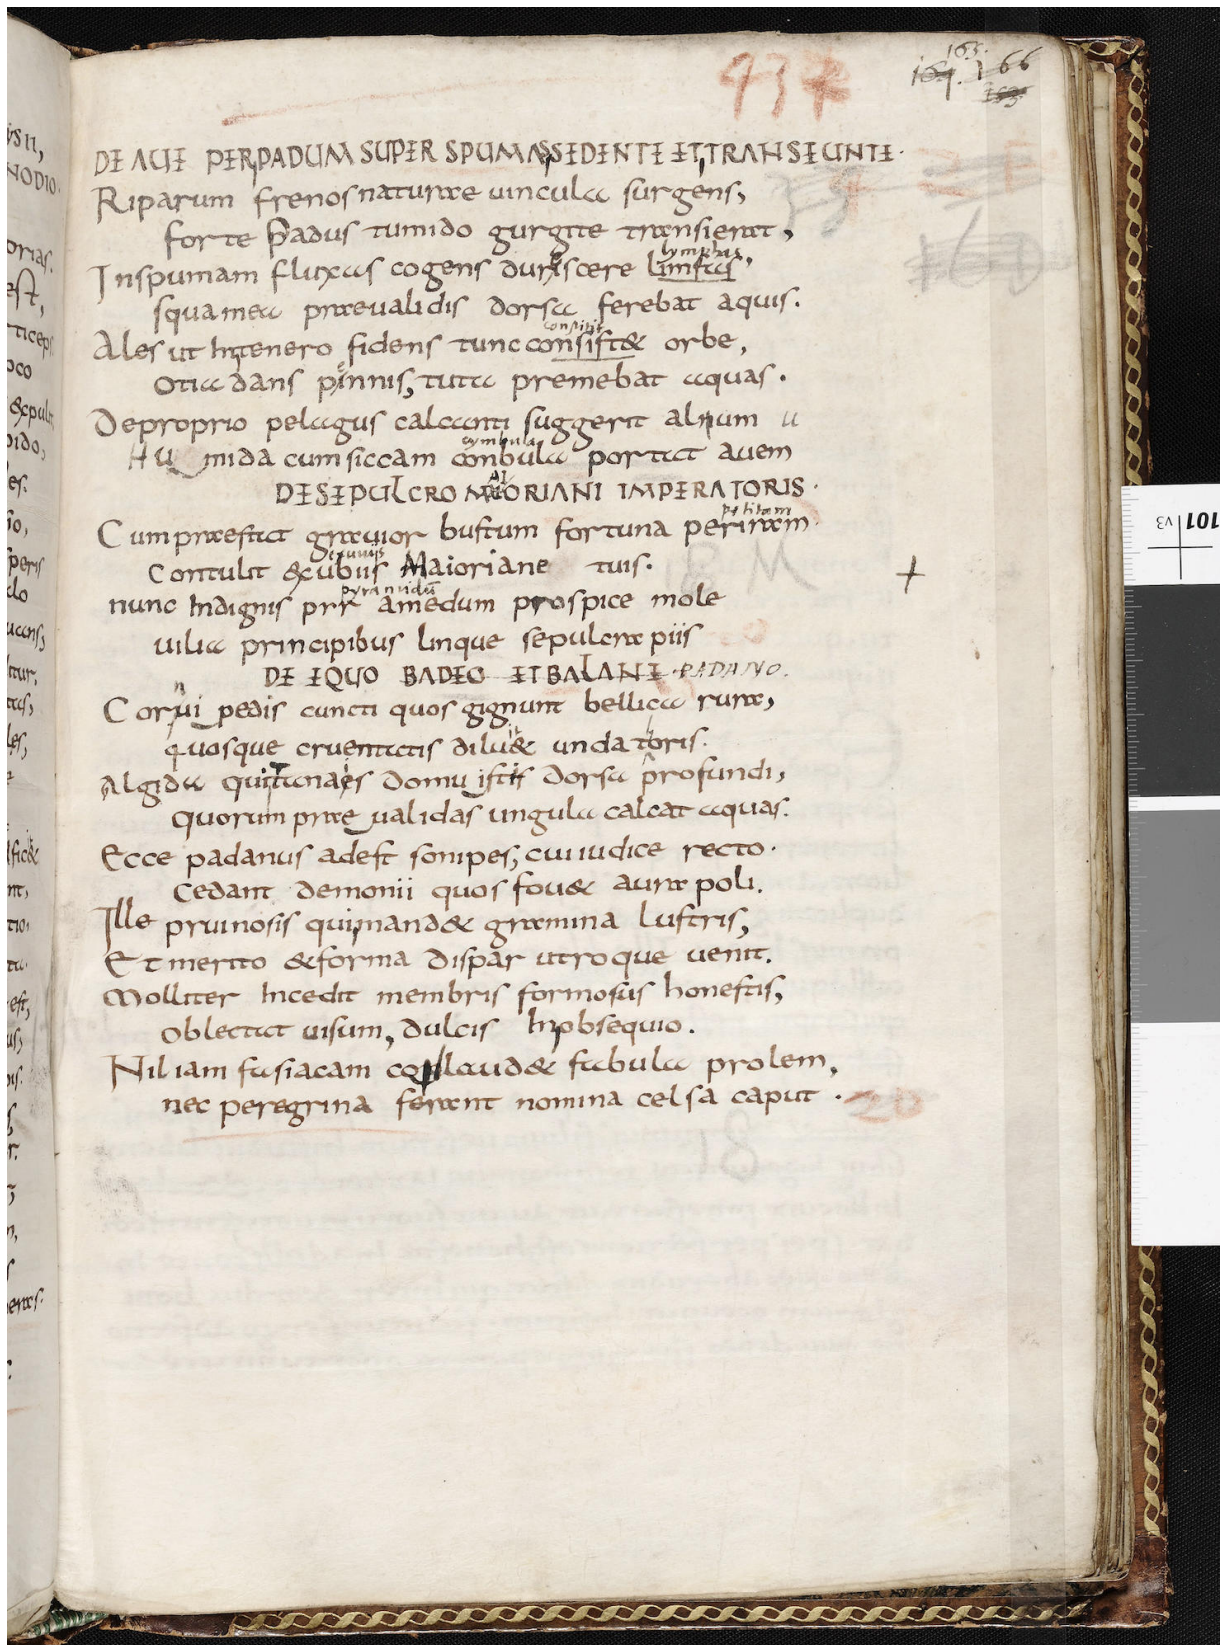 437
165.
164. 166
153
DE AUE PER PADUM SUPER SPUMAS SEDENTE ET TRANSEUNTE.
Riparum frenos naturae uincula surgens,
forte Padus tumido gurgite transierat,
lymphas,
In spumam fluxus cogens durescere limfas
squamea praeualidis dorsa ferebat aquis.
consistit
Ales ut In tenero fidens tunc consist& orbe,
Otia dans pennis, tuta premebat aquas.
De proprio pelagus calcanti suggerit alnum
cymbula
Humida cum siccam conbula portat auem
DE SEPULCRO MAIORIANI IMPERATORIS.
petitam
Cum praestat grauior bustum fortuna perirram
exuuiis
Contulit &ubiis Maioriane tuis.
pyramidũ
nunc Indignis prr amedum prospice mole
uilia principibus linque sepulcra piis
DE EQUO BADEG ET BALANE PADANO.
Corui pedis cuncti quos gignunt bellica rura,
quosque cruentatis dilu& unda toris.
Algida quitanaes domu istis dorsa profundi,
Quorum prae ualidas ungula calcat aquas.
Ecce padanus adest sonipes, cui iudice recto.
Cedant demonii quos fou& aura poli.
Ille pruinosis qui mand& gramina lustris,
Et merito &forma dispar utroque uenit.
Molliter Incedit membris formosus honestis,
Oblectat uisum, dulcis In obsequio.
Nil iam fasiacam conlaud& fabula prolem,
nec peregrina ferant nomina celsa caput.
20
101
v3